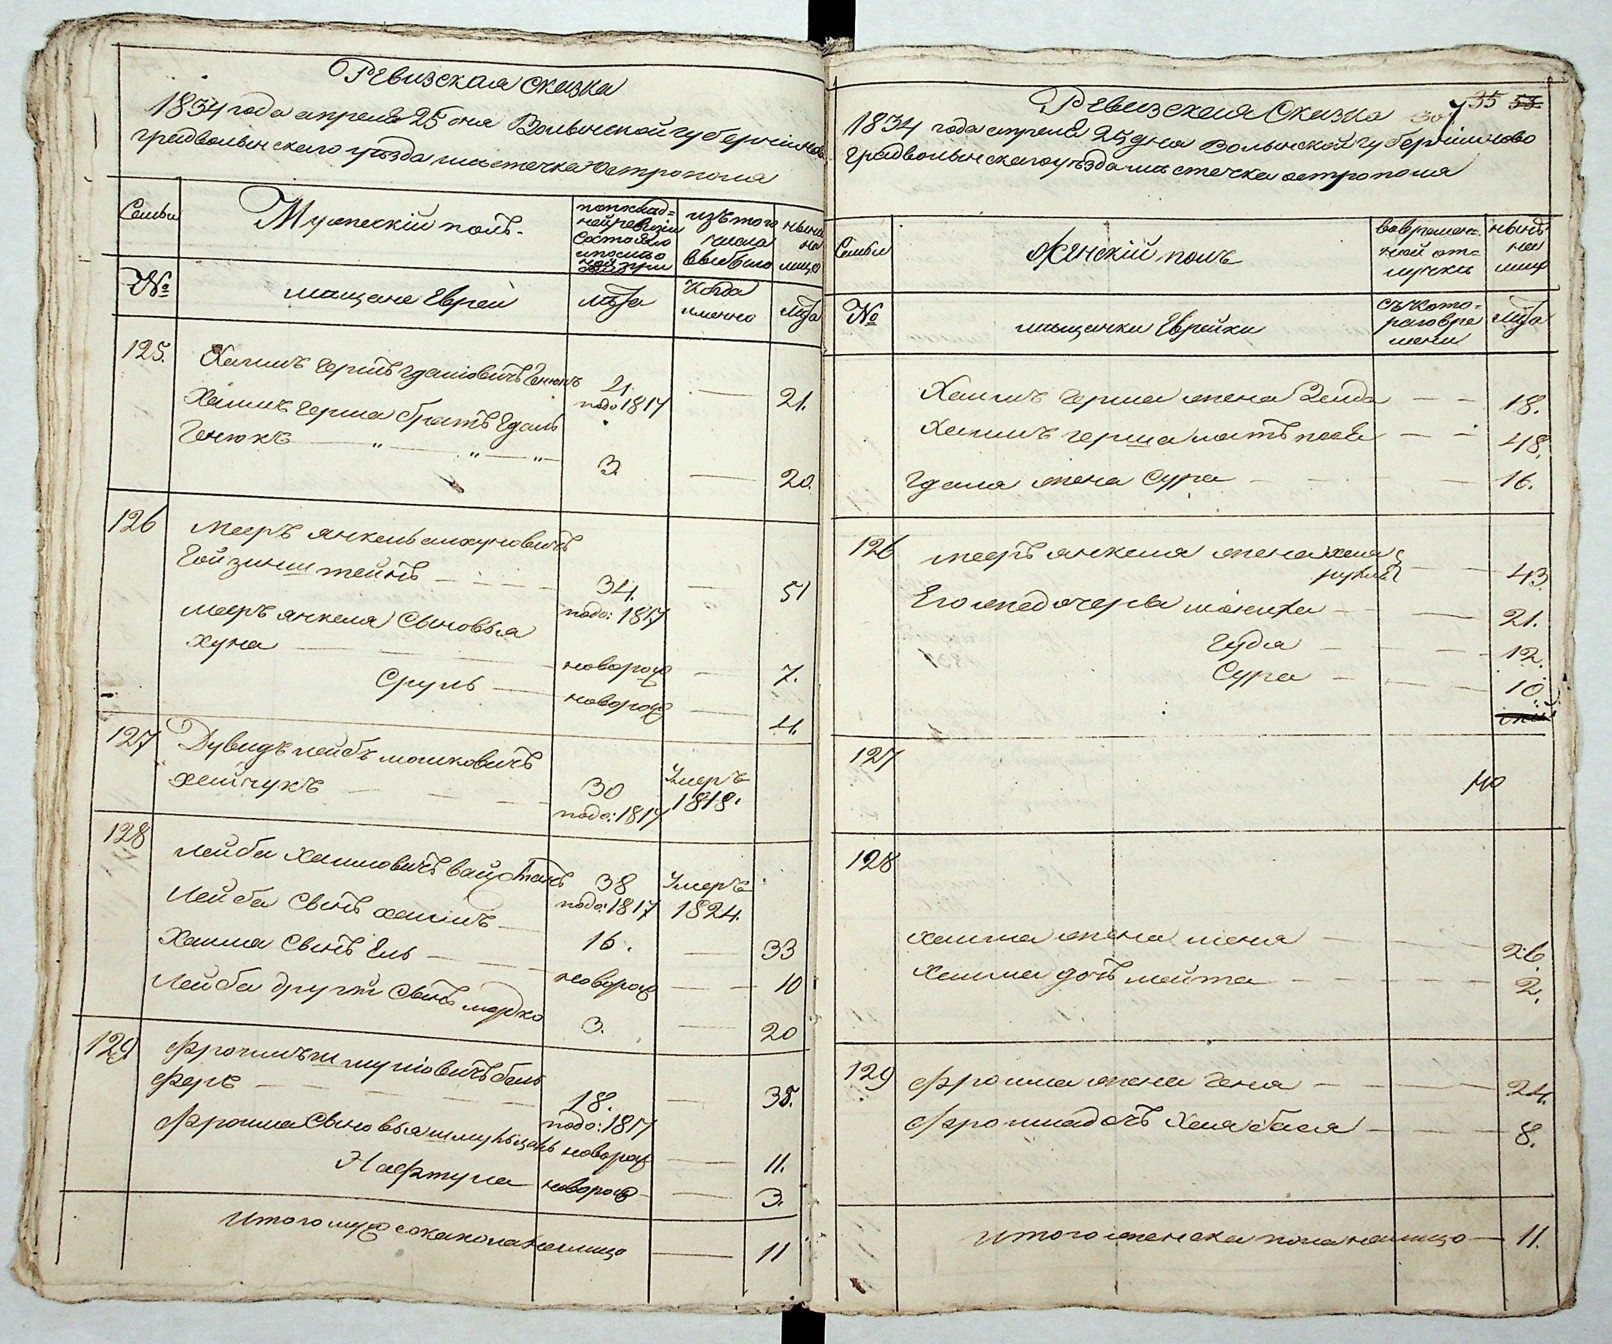 Ревизская сказка
1834 года апреля 25 дня Волынской губернии Ново
градволынского уѣзда мѣстечка Острополя
Семьи
Мужескій полъ.
по послѣд=
ней ревизіи
состояло
и послѣ
изъ того
числа
выбыло
нынѣ
на
лицо
№
мещане Евреи
лѣта
когда
именно
лѣта
125.
Хаимъ Гершъ Гдаліовичъ
21.
подо 1817
21.
Хаимъ Герша братъ Гдаль
3.
20.
126
Мееръ Янкель Ахуновичъ
34.
51
подо: 1817
Мееръ Янкеля сыновья
Хуна
новорож
7.
Сруль
новорож
4.
127
Дувидъ Лейбъ Мошковичъ
Хейчукъ
30
подо: 1817
Умеръ
1818.
128
Лейба Хаимовичъ
38
подо: 1817
Умеръ
1824.
Лейба сынъ Хаимъ
16.
33
Хаима сынъ Ель
новорож
10
Лейба другій сынъ Мордко
3.
20
129
Фроимъ Шмуліовичъ
феръ
18.
подо: 1817
35.
Фроима сыновья
новорож
11.
Нафтула
новорож
3.
Итого муж полана лицо
11
Ревизская Сказка
35 53
1834 года апреля 25 дня Волынской губерніи Ново
градволынского уѣзда мѣстечка Острополя
Семьи
Женскій полъ
во времен=
ной от=
лучкѣ
нынѣ
на
лицо
№
мещанки Еврейки
съ кото=
раго вре
мени
лѣта
Хаимъ Герша жена Зелда
18.
Хаимъ Герша мать Песя
48.
Гдаля жена Сура
16.
126
Мееръ Янкеля жена Хая
Рухля
43
Его же дочеры
21.
Гудя
12.
Сура
10
127
128
Хаима жена Шеня
26.
Хаима дочь
2.
129
Фроима жена Геня
24.
Фроима дочь Хая Бася
8.
Итого женска пола на лицо
11.